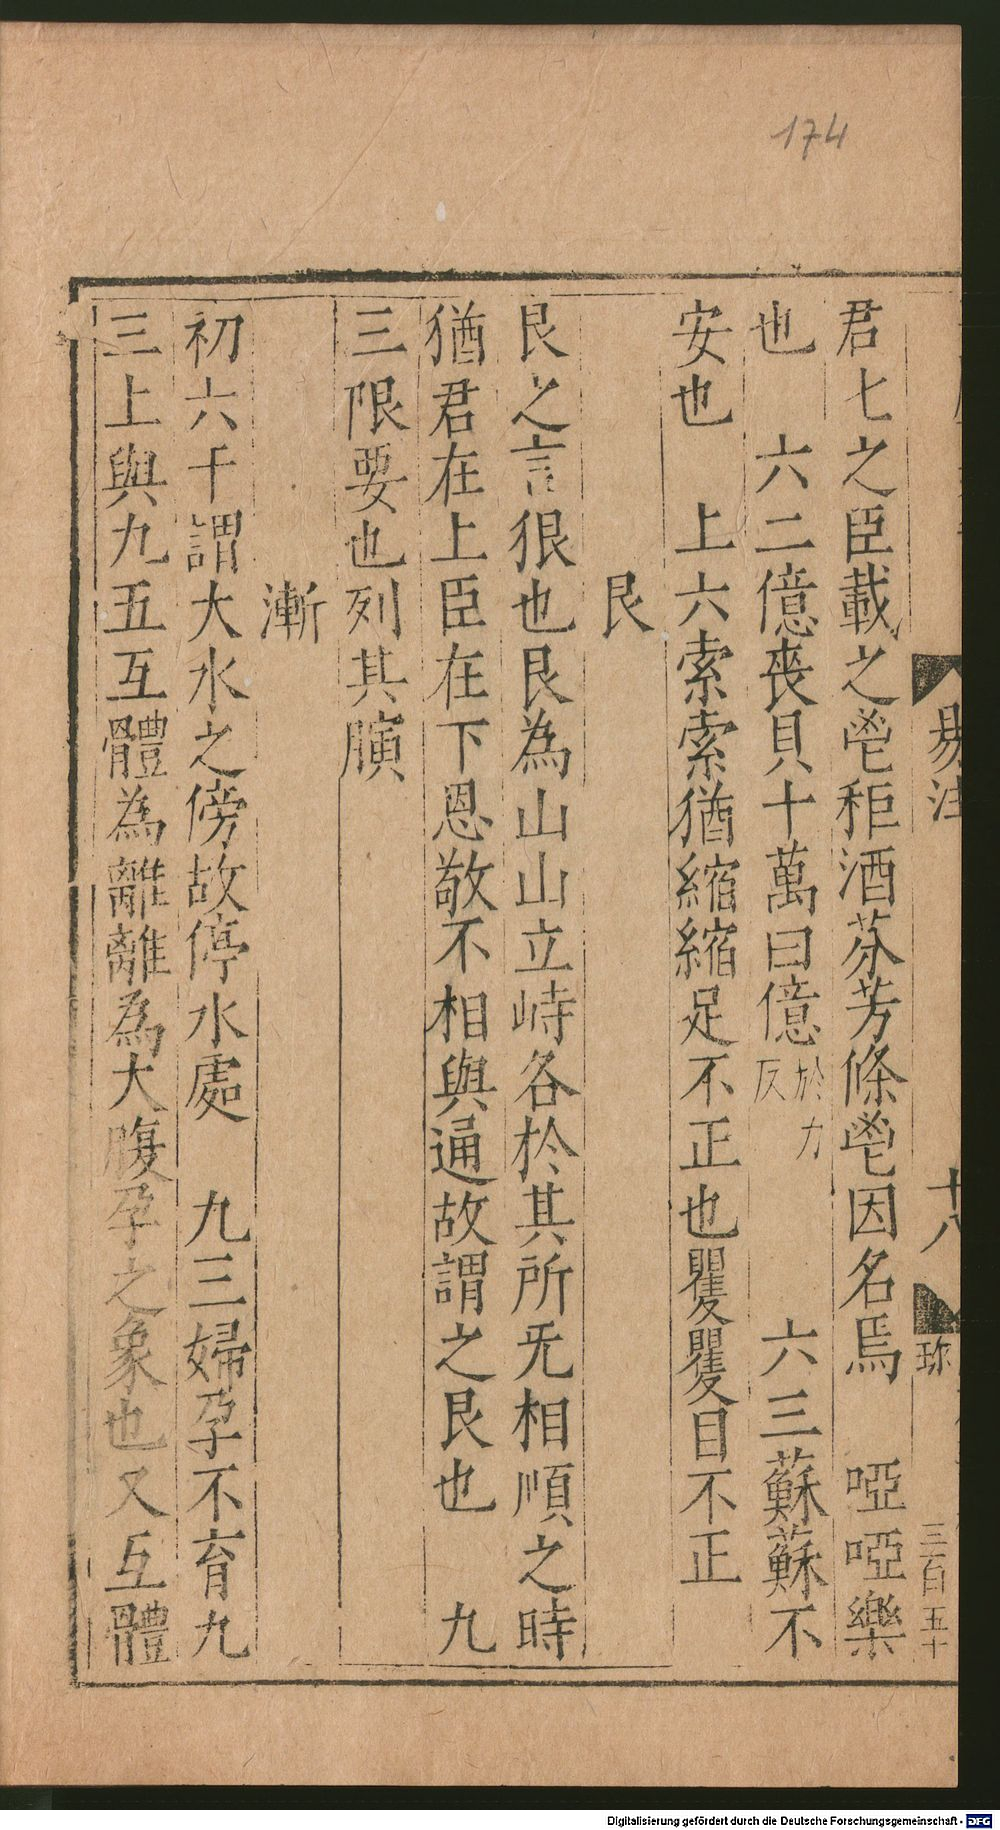 174
易注 十八 珎 三百五十
君匕之臣載之鬯秬酒芬芳條鬯因名焉 啞啞樂
也 六二億喪貝十萬曰億於力反 六三蘇蘇不
安也 上六索索猶縮縮足不正也矍矍目不正
艮
艮之言很也艮為山山立峙各於其所旡相順之時
猶君在上臣在下恩敬不相與通故謂之艮也 九
三限要也列其䐄
漸
初六干謂大水之傍故停水處 九三婦孕不育九
三上與九五互體為離離為大腹孕之象也又互體
Digitalisierung gefördert durch die Deutsche Forschungsgemeinschaft - DFG